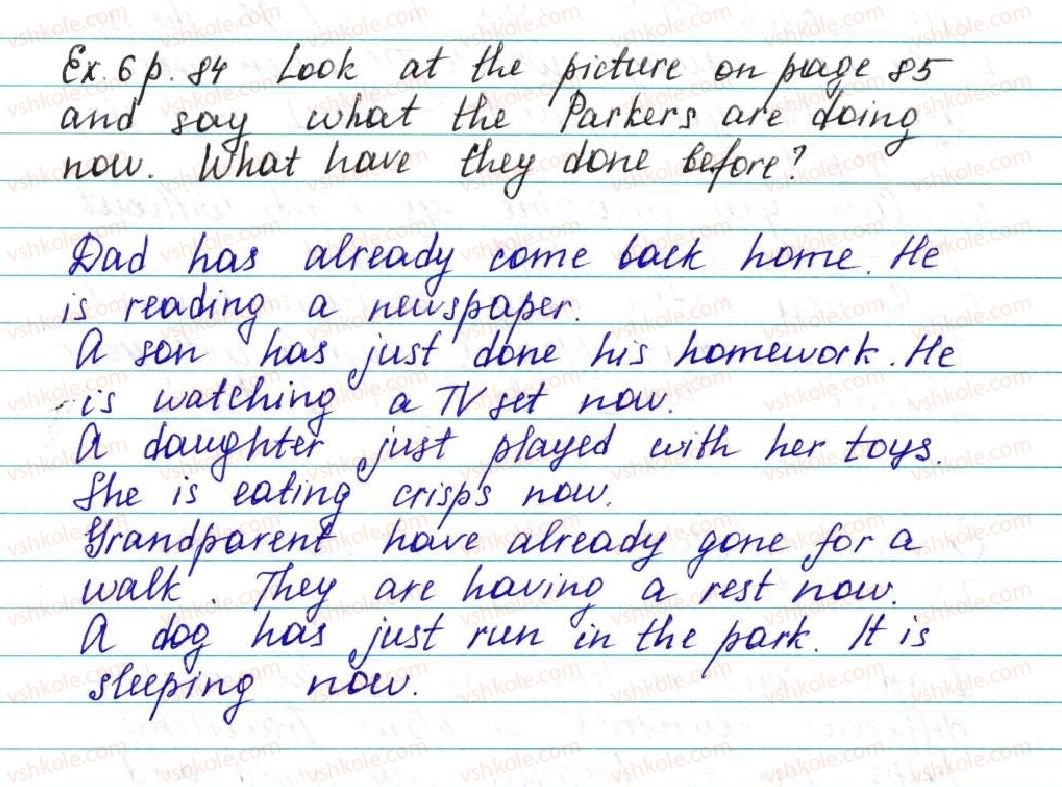 Ex. 6 p. 84 Look at the picture on page 85
and say what the Parkers are doing
now. What have they done before?
Dad has already come back home. He
is reading a newspaper.
A son has just done his homework. He
is watching a TV set now.
A daughter just played with her toys.
She is eating crisps now.
Grandparent have already gone for a
walk. They are having a rest now.
A dog has just run in the park. It is
sleeping now.